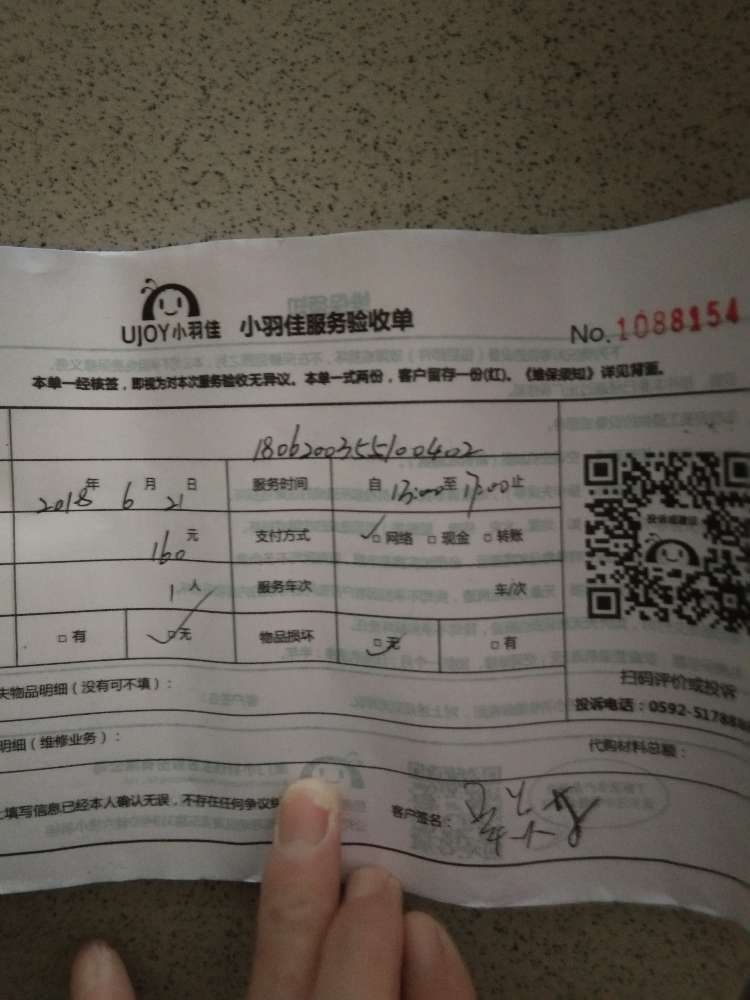 UJOY小羽佳 小羽佳服务验收单 No.1088154
本单一经核签，即视为对本次服务验收无异议。本单一式两份，客户留存一份(红)。《维保须知》详见背面。
18062003555100402
2018年6月21日 服务时间 自13:00至17:00止
160元 支付方式 ✓□网络 □现金 □转账
1人 服务车次 车/次
□有 ☑无 物品损坏 ☑无 □有
投诉或建议
扫码评价或投诉
投诉电话：0592-517888
失物品明细（没有可不填）：
明细（维修业务）： 代购材料总额：
上填写信息已经本人确认无误，不存在任何争议 客户签名：